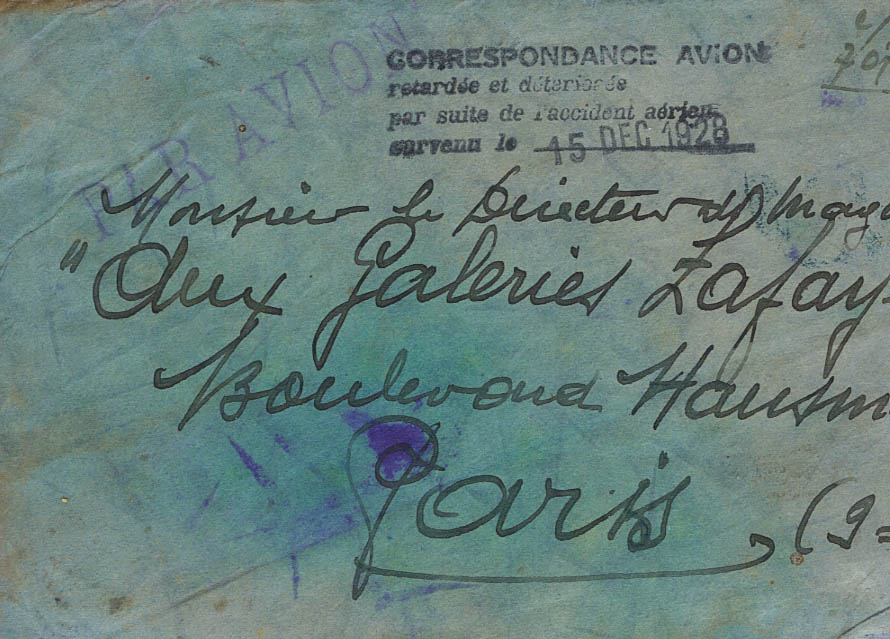 PAR AVION
CORRESPONDANCE AVION
retardée et détériorée
par suite de l'accident aérien
survenu le 15 DEC 1928
Monsieur le Directeur
"Aux Galeries Lafay
Boulevard Hausm
Paris, (9=